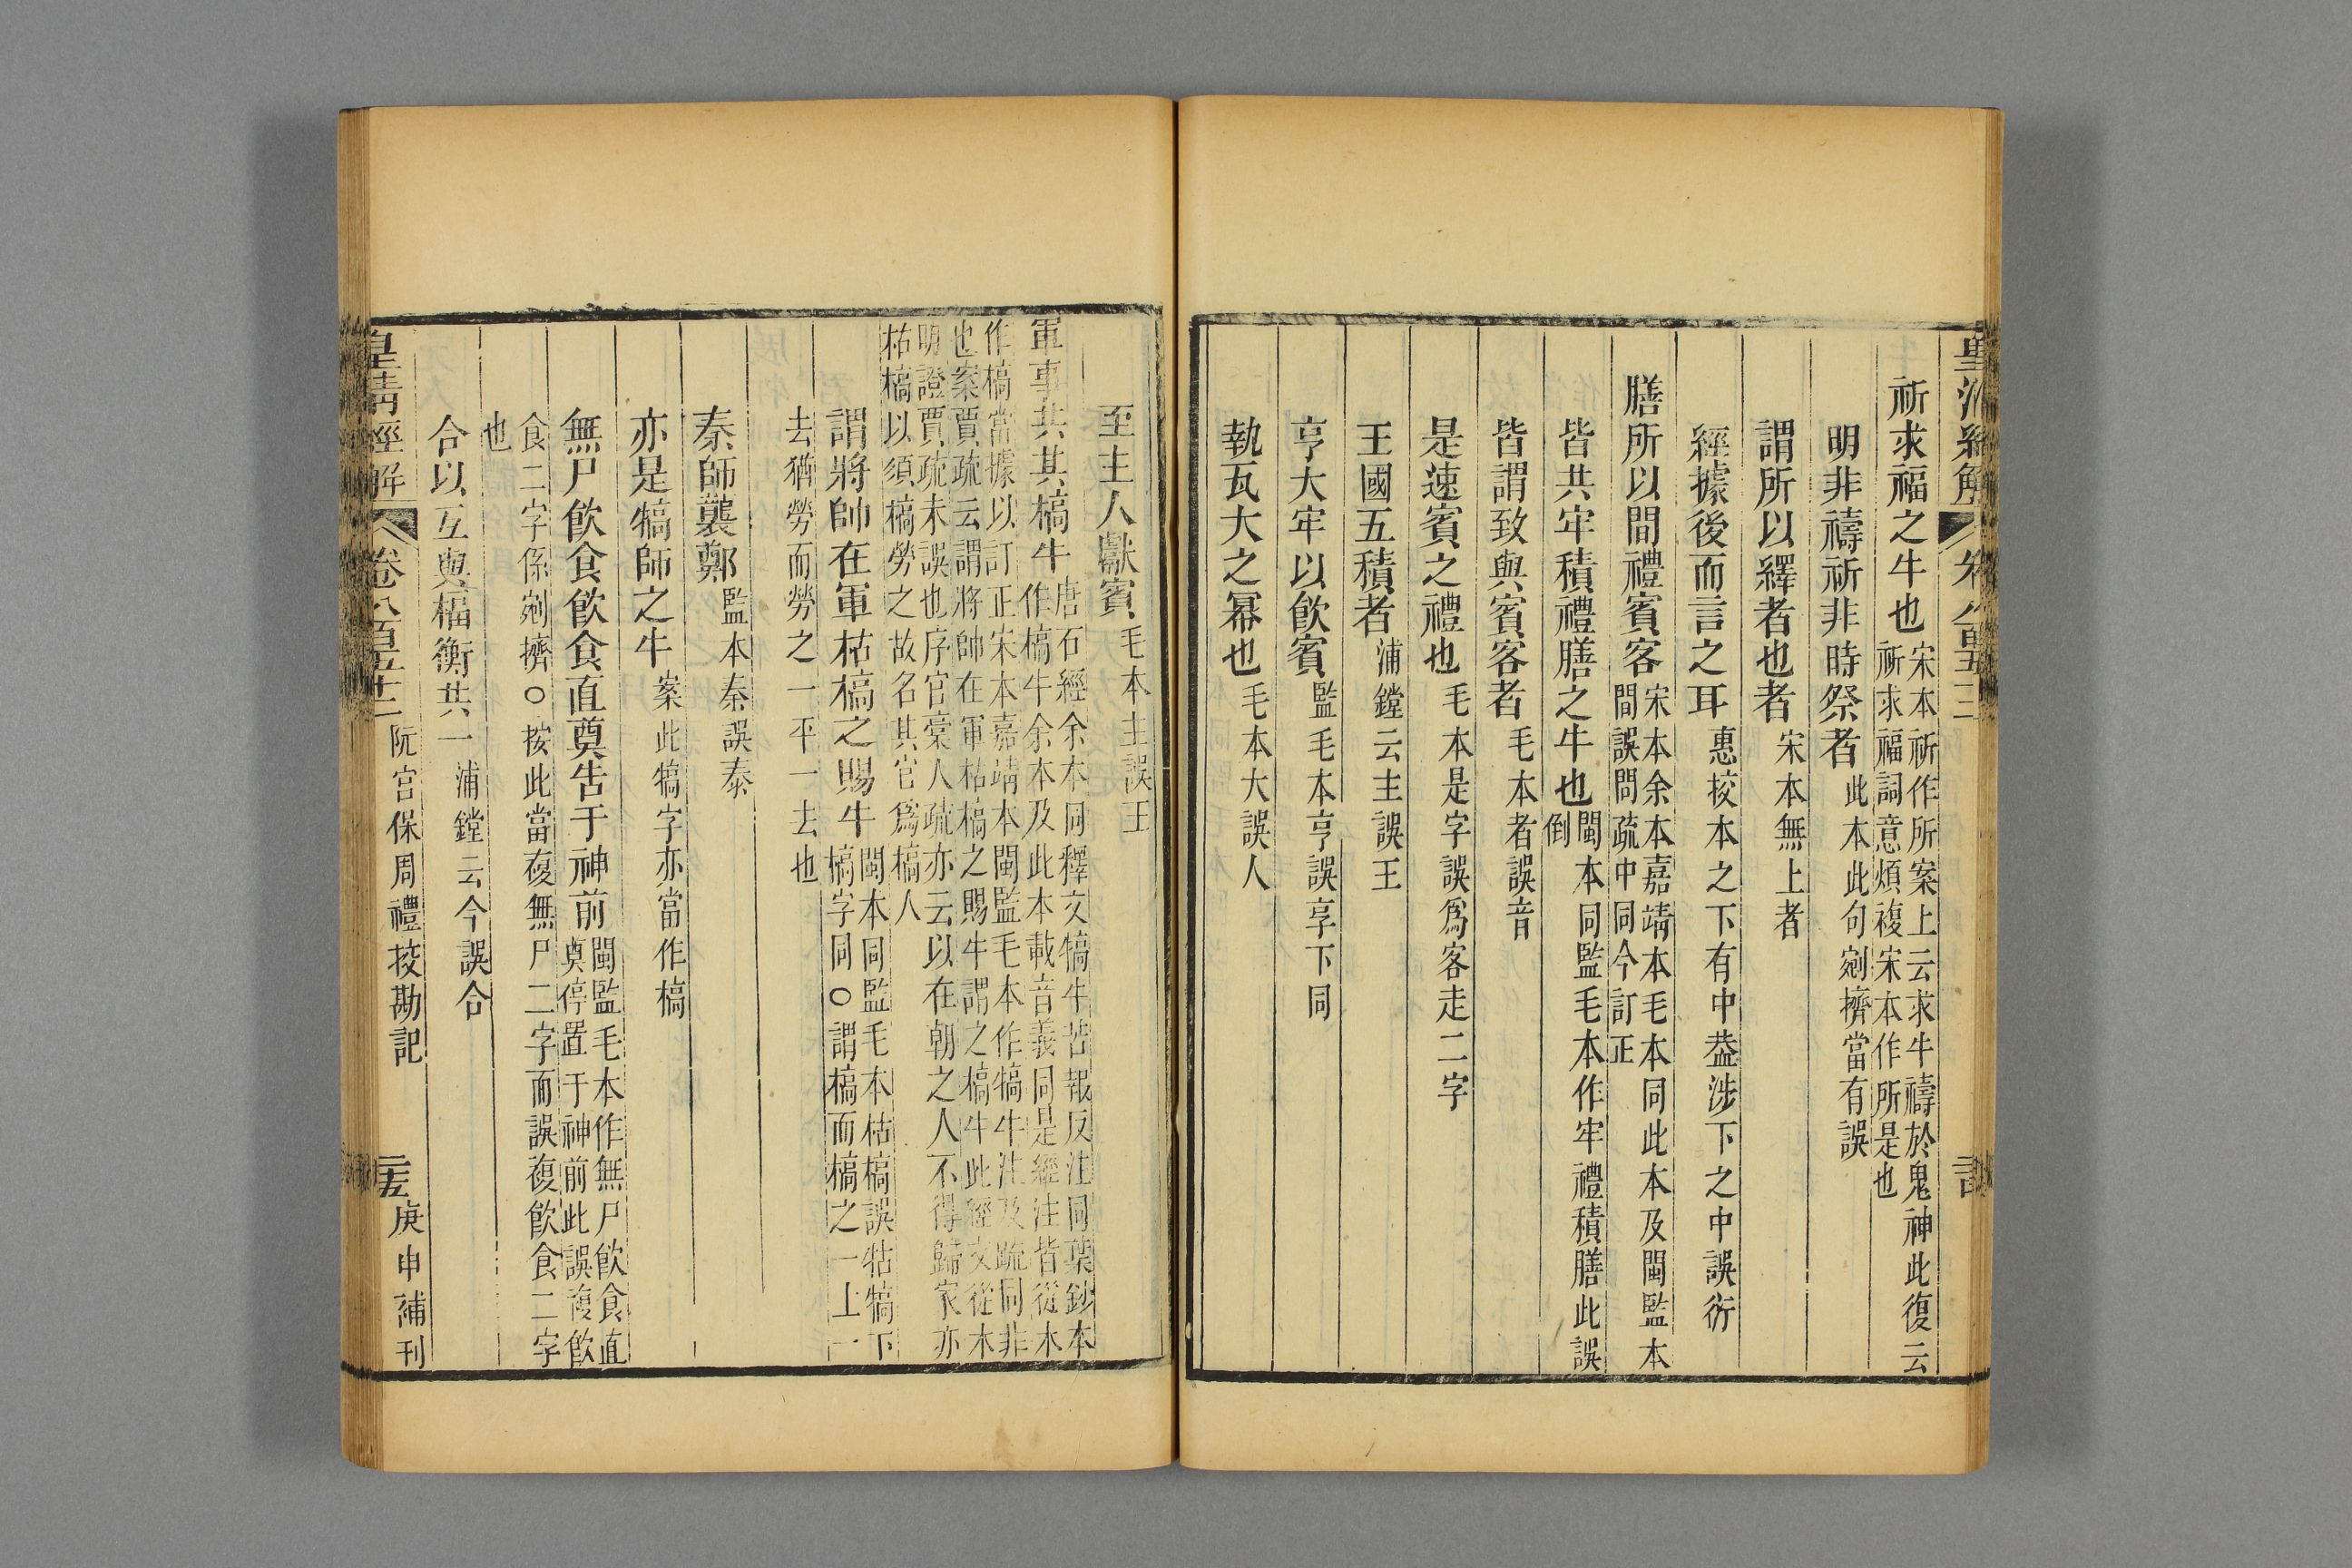 皇清經解 卷八百五十二
祈求福之牛也 宋本祈作所案上云求牛禱於鬼神此復云
祈求福詞意煩複宋本作所是也
明非禱祈非時祭者 此本此句剜擠當有誤
謂所以繹者也者 宋本無上者
經據後而言之耳 惠挍本之下有中葢涉下之中誤衍
膳所以間禮賓客 宋本余本嘉靖本毛本同此本及閩監本
間誤問疏中同今訂正
皆共牢積禮膳之牛也 閩本同監毛本作牢禮積膳此誤
倒
皆謂致與賓客者 毛本者誤音
是速賓之禮也 毛本是字誤爲客走二字
王國五積者 浦鏜云主誤王
亨大牢以飲賓 監毛本亨誤享下同
執瓦大之幂也 毛本大誤人
至主人獻賓 毛本主誤王
軍事共其槁牛 唐石經余本同釋文犒牛苦報反注同葉鈔本
作槁牛余本及此本載音義同是經注皆從木
作槁當據以訂正宋本嘉靖本閩監毛本作犒牛注及疏同非
也案賈疏云謂將帥在軍枯槁之賜牛謂之槁牛此經文從木
明證賈疏未誤也序官稾人疏亦云以在朝之人不得歸家亦
枯槁以須槁勞之故名其官爲槁人
謂將帥在軍枯槁之賜牛 閩本同監毛本枯槁誤牯犒下
槁字同〇謂槁而槁之一上一
去猶勞而勞之一平一去也
秦師襲鄭 監本秦誤泰
亦是犒師之牛 案此犒字亦當作槁
無尸飲食飲食直奠告于神前 閩監毛本作無尸飲食直
奠停置于神前此誤複飲
食二字係剜擠〇按此當複無尸二字而誤複飲食二字
也
合以互與楅衡共一 浦鏜云今誤合
皇清經解 卷八百五十二 阮宮保周禮挍勘記 二十五 庚申補刊